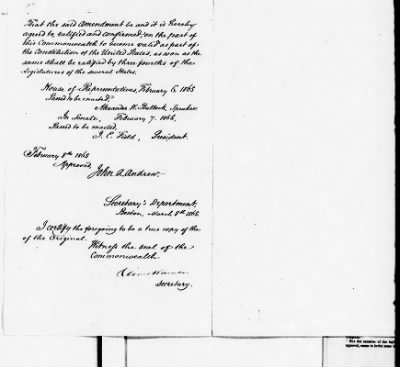 That the said Amendment be and it is hereby
agreed to, ratified and confirmed, on the part of
this Commonwealth to become valid as part of
the Constitution of the United States, as soon as the
same shall be ratified by three fourths of the
legislatures of the several States.
House of Representatives, February 6, 1865
Passed to be enacted,
Alexander H. Bullock, Speaker.
In Senate, February 7, 1865,
Passed to be enacted,
J. E. Field, President.
February 8th 1865
Approved,
John A. Andrew.
Secretary's Department,
Boston, March 8th 1865.
I certify the foregoing to be a true copy of the
of the Original.
Witness the seal of the
Commonwealth.
Oliver Warner
Secretary.